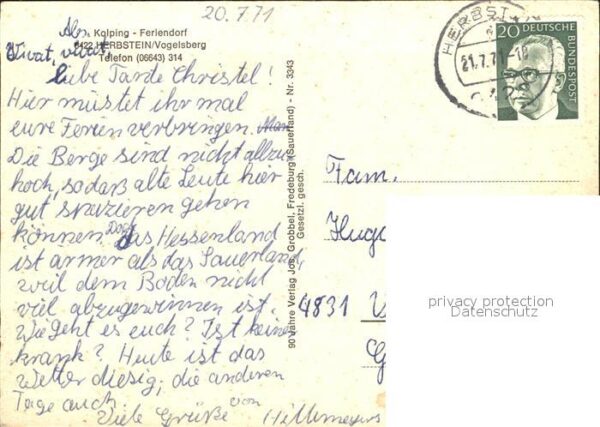 20.7.71
Abs. Kolping - Feriendorf
6422 HERBSTEIN/Vogelsberg
Telefon (06643) 314
Vivat, vivat,
liebe Tante Christel!
Hier müßtet ihr mal
eure Ferien verbringen.
Die Berge sind nicht allzu
hoch, sodaß alte Leute hier
gut spazieren gehen
können. Doch das Hessenland
ist ärmer als das Sauerland,
weil dem Boden nicht
viel abzugewinnen ist.
Wie geht es euch? Ist keiner
krank? Heute ist das
Wetter diesig, die anderen
Tage auch.
Viele Grüße von Hillemeyers
90 Jahre Verlag Jos. Grobbel, Fredeburg (Sauerland) - Nr. 3343
Gesetzl. gesch.
HERBSTEIN
21.7.71-18
642
20 DEUTSCHE
BUNDESPOST
Fam.
Hugo
4831
privacy protection
Datenschutz